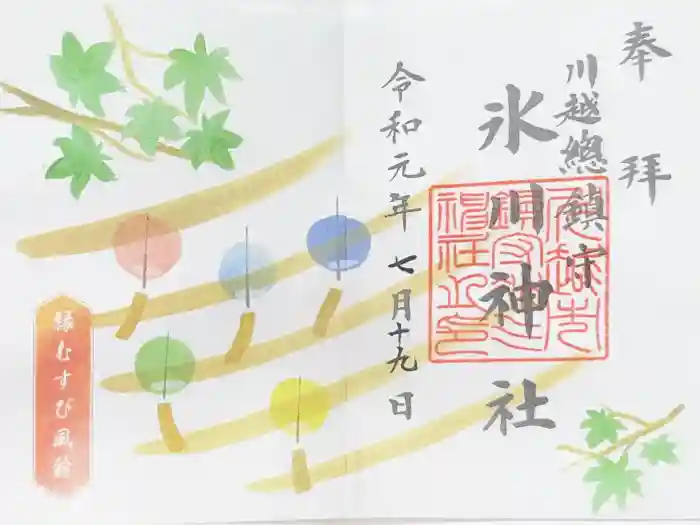 奉拝
川越總鎮守
氷川神社
令和元年七月十九日
縁むすび風鈴